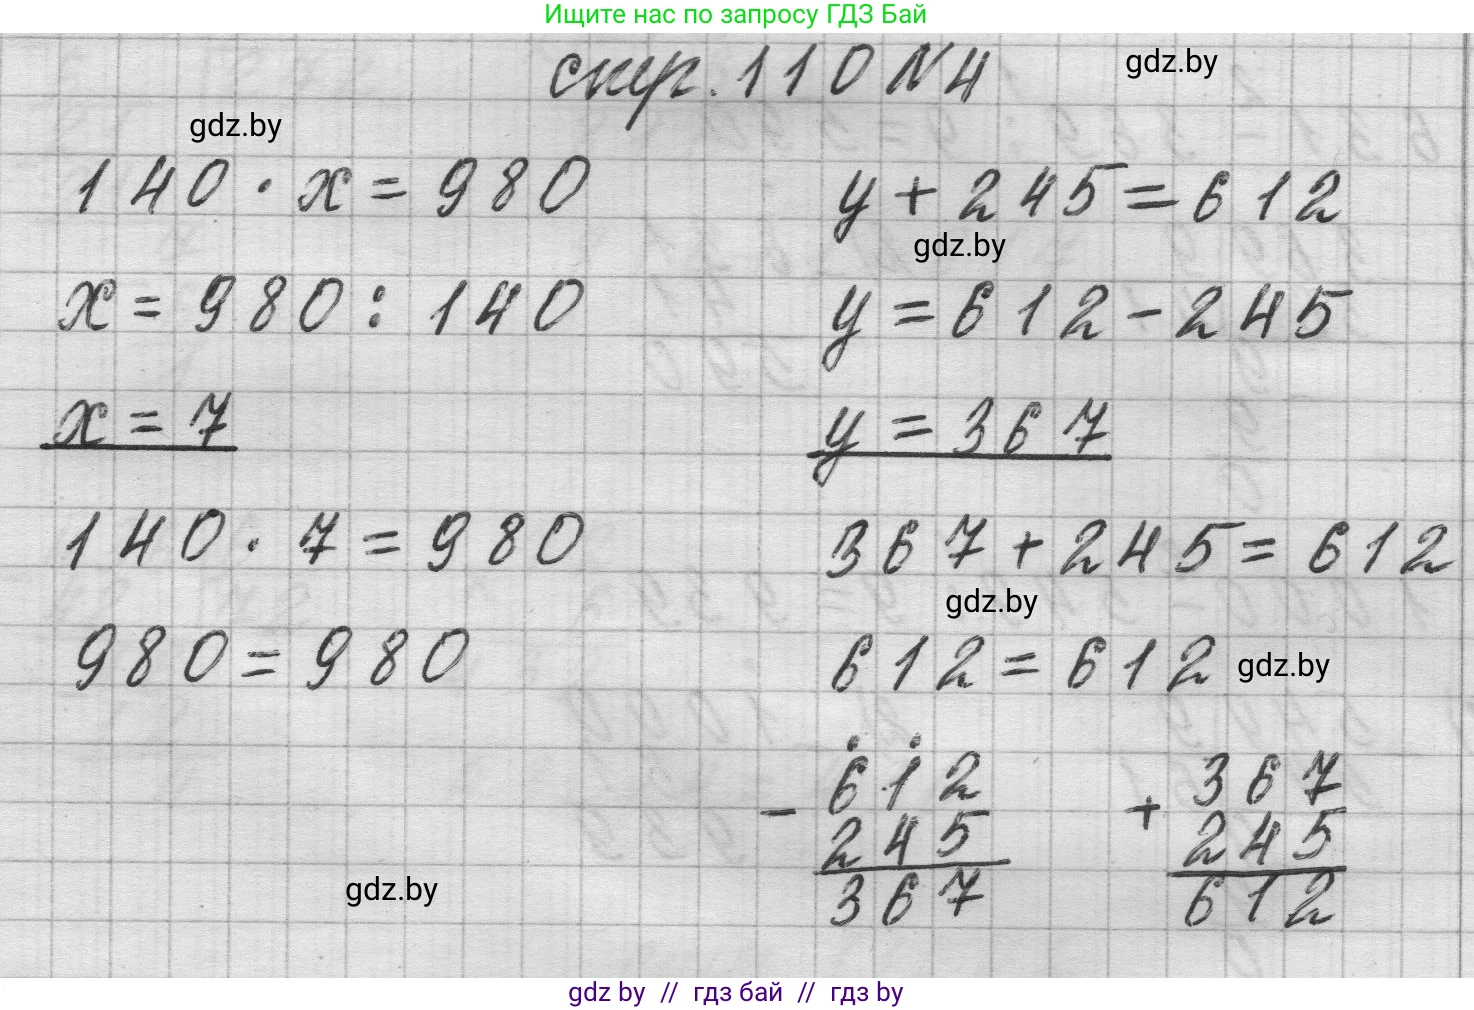 Ищите нас по запросу ГДЗ Бай
стр. 110 N4
gdz.by
gdz.by
140 · x = 980
x = 980 : 140
x = 7
140 · 7 = 980
980 = 980
gdz.by
y + 245 = 612
gdz.by
y = 612 - 245
y = 367
367 + 245 = 612
gdz.by
612 = 612
gdz.by
- 612
245
367
+ 367
245
612
gdz by // гдз бай // гдз by